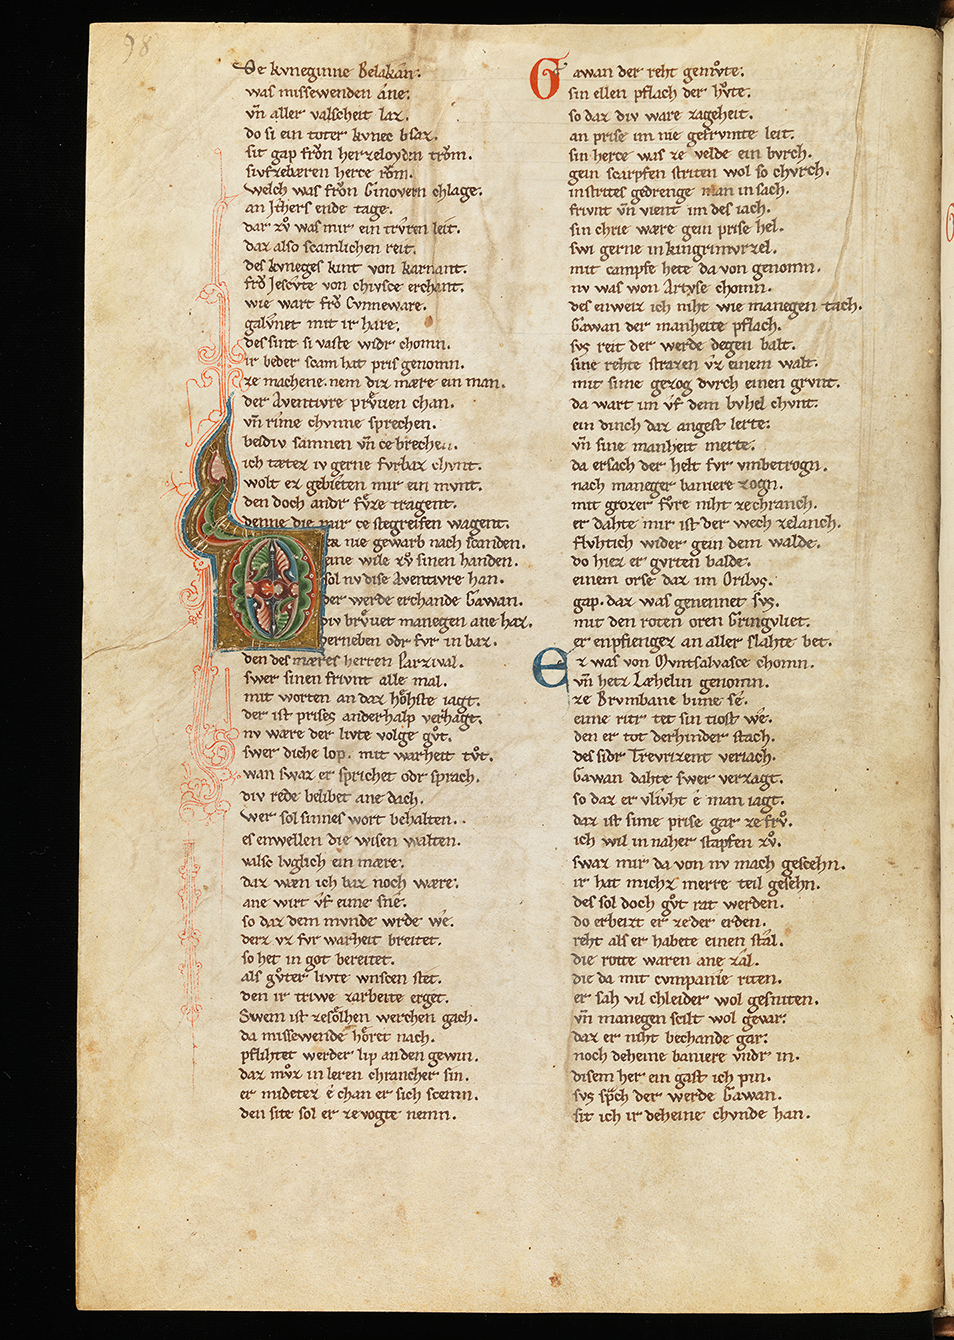 98
De kvneginne Belakan.
was missewenden ane.
vn̄ aller valscheit laz.
do si ein toter kvnec bsaz.
sit gap frǒn herzeloydin trǒm.
sivfzebæren herce rǒm.
welch was frǒn Ginovern chlage.
an Ithers ende tage.
dar zv̊ was mir ein trv̂ren leit.
daz also scamlichen reit.
des kvneges kint von karnant.
frǒ Jescvte von chivsce erchant.
wie wart frǒ Cvnneware.
galv̂net mit ir hare.
des sint si vaste widr chomn.
ir beder scam hat pris genomn.
ze machene. nem diz mære ein man.
der Aventivre prv̊uen chan.
vn̄ rime chvnne sprechen.
beidiv samnen vn̄ cebrechen.
ich tætez iv gerne fvrbaz chvnt.
wolt ez gebieten mir ein mvnt.
den doch andr fv̊ze tragent.
denne die mir ce stegreifen wagent.
nie gewarb nach scanden.
eine wile zv̊ sinen handen.
sol nv dise Aventivre han.
der werde erchande Gawan.
div brv̊uet manegen ane haz.
derneben odr fvr in baz.
den des mæres herren Parzival.
swer sinen frivnt alle mal.
mit worten an daz hǒhste iagt.
der ist prises anderhalp verhagt.
nv wære der livte volge gv̊t.
swer diche lop. mit warheit tv̊t.
wan swaz er sprichet odr sprach.
div rede belibet ane dach.
wer sol sinnes wort behalten.
es enwellen die wisen walten.
valsc lvglich ein mære.
daz wæn ich baz noch wære.
ane wirt vf eime sne.
so daz dem mvnde wrde we.
derz vz fvr warheit breitet.
so het in got bereitet.
als gv̊ter livte wnscen stet.
den ir triwe zarbeite erget.
Swem ist zesǒlhen werchen gach.
da missewende hǒret nach.
pflihtet werder lip an den gewin.
daz mv̊z in leren chrancher sin.
er midetez e chan er sich scemn.
den site sol er ze vogte nemn.
Gawan der reht gemv̊te.
sin ellen pflach der hv̊te.
so daz div ware zageheit.
an prise im nie gefrvmte leit.
sin herce was ze velde ein bvrch.
gein scarpfen striten wol so chvrch.
in strites gedrenge man in sach.
frivnt vn̄ vient im des iach.
sin chrie wære gein prise hel.
swi gerne in kingrimvrzel.
mit campfe hete da von genomn.
nv was von Artvse chomn.
des enweiz ich niht wie manegen tach.
Gawan der manheite pflach.
svs reit der werde degen balt.
sine rehte strazen vz einem walt.
mit sime gezog dvrch einen grvnt.
da wart im vf dem bvhel chvnt.
ein dinch daz angest lerte.
vn̄ sine manheit merte.
da ersach der helt fvr vmbetrogn.
nach maneger baniere zogn.
mit grozer fv̊re niht ze chranch.
er dahte mir ist der wech zelanch.
flvhtich wider gein dem walde.
do hiez er gvrten balde.
einem orse daz im Orilvs.
gap. daz was genennet svs.
mit den roten oren Gringvliet.
er enpfiengez an aller slahte bet.
Ez was von Mvntsalvasce chomn.
vn̄ hetz Læhelin genomn.
ze Brvmbane bime se.
eime ritr tet sin tiost we.
den er tot derhinder stach.
des sidr Trevrizent veriach.
Gawan dahte swer verzagt.
so daz er vlivht e man iagt.
daz ist sime prise gar ze frv̊.
ich wil in naher stapfen zv̊.
swaz mir da von nv mach gescehn.
ir hat michz merre teil gesehn.
des sol doch gv̊t rat werden.
do erbeizt er ze der erden.
reht als er habete einen stal.
die rotte waren ane zal.
die da mit cvmpanie riten.
er sah vil chleider wol gesniten.
vn̄ manegen scilt wol gevar.
daz er niht bechande gar.
noch deheine baniere vndr in.
disem her ein gast ich pin.
svs spch der werde Gawan.
sit ich ir deheine chvnde han.